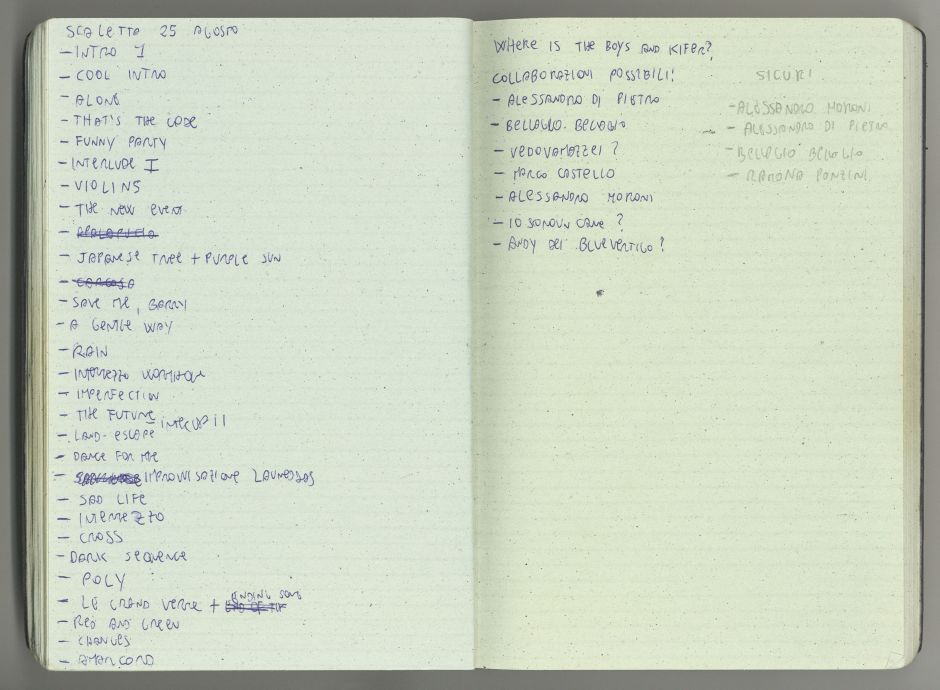 SCALETTA 25 AGOSTO
- INTRO 1
- COOL INTRO
- ALONE
- THAT'S THE CODE
- FUNNY PARTY
- INTERLUDE I
- VIOLINS
- THE NEW EVENT
- JAPANESE TREE + PURPLE SUN
- CARCOSA
- SAVE ME, BARRY
- A GENTLE WAY
- RAIN
- INTERMEZZO
- IMPERFECTION
- THE FUTURE
- LAND-ESCAPE
- DANCE FOR ME
- IMPROVVISAZIONE LAUNEDDAS
- SAD LIFE
- INTERMEZZO
- CROSS
- DARK SEQUENCE
- POLY
- LE GRAND VERRE + ENDING SONG
- RED AND GREEN
- CHANGES
- AMARCORD
WHERE IS THE BOYS AND KIFER?
COLLABORAZIONI POSSIBILI:
- ALESSANDRO DI PIETRO
- BELLAGIO BELLAGIO
- VEDOVAMAZZEI?
- MARCO CASTELLO
- ALESSANDRO MORONI
- IOSONOUN CANE?
- ANDY DEI BLUEVERTIGO?
SICURI
- ALESSANDRO MORONI
- ALESSANDRO DI PIETRO
- BELLAGIO BELLAGIO
- RAMONA PONZINI